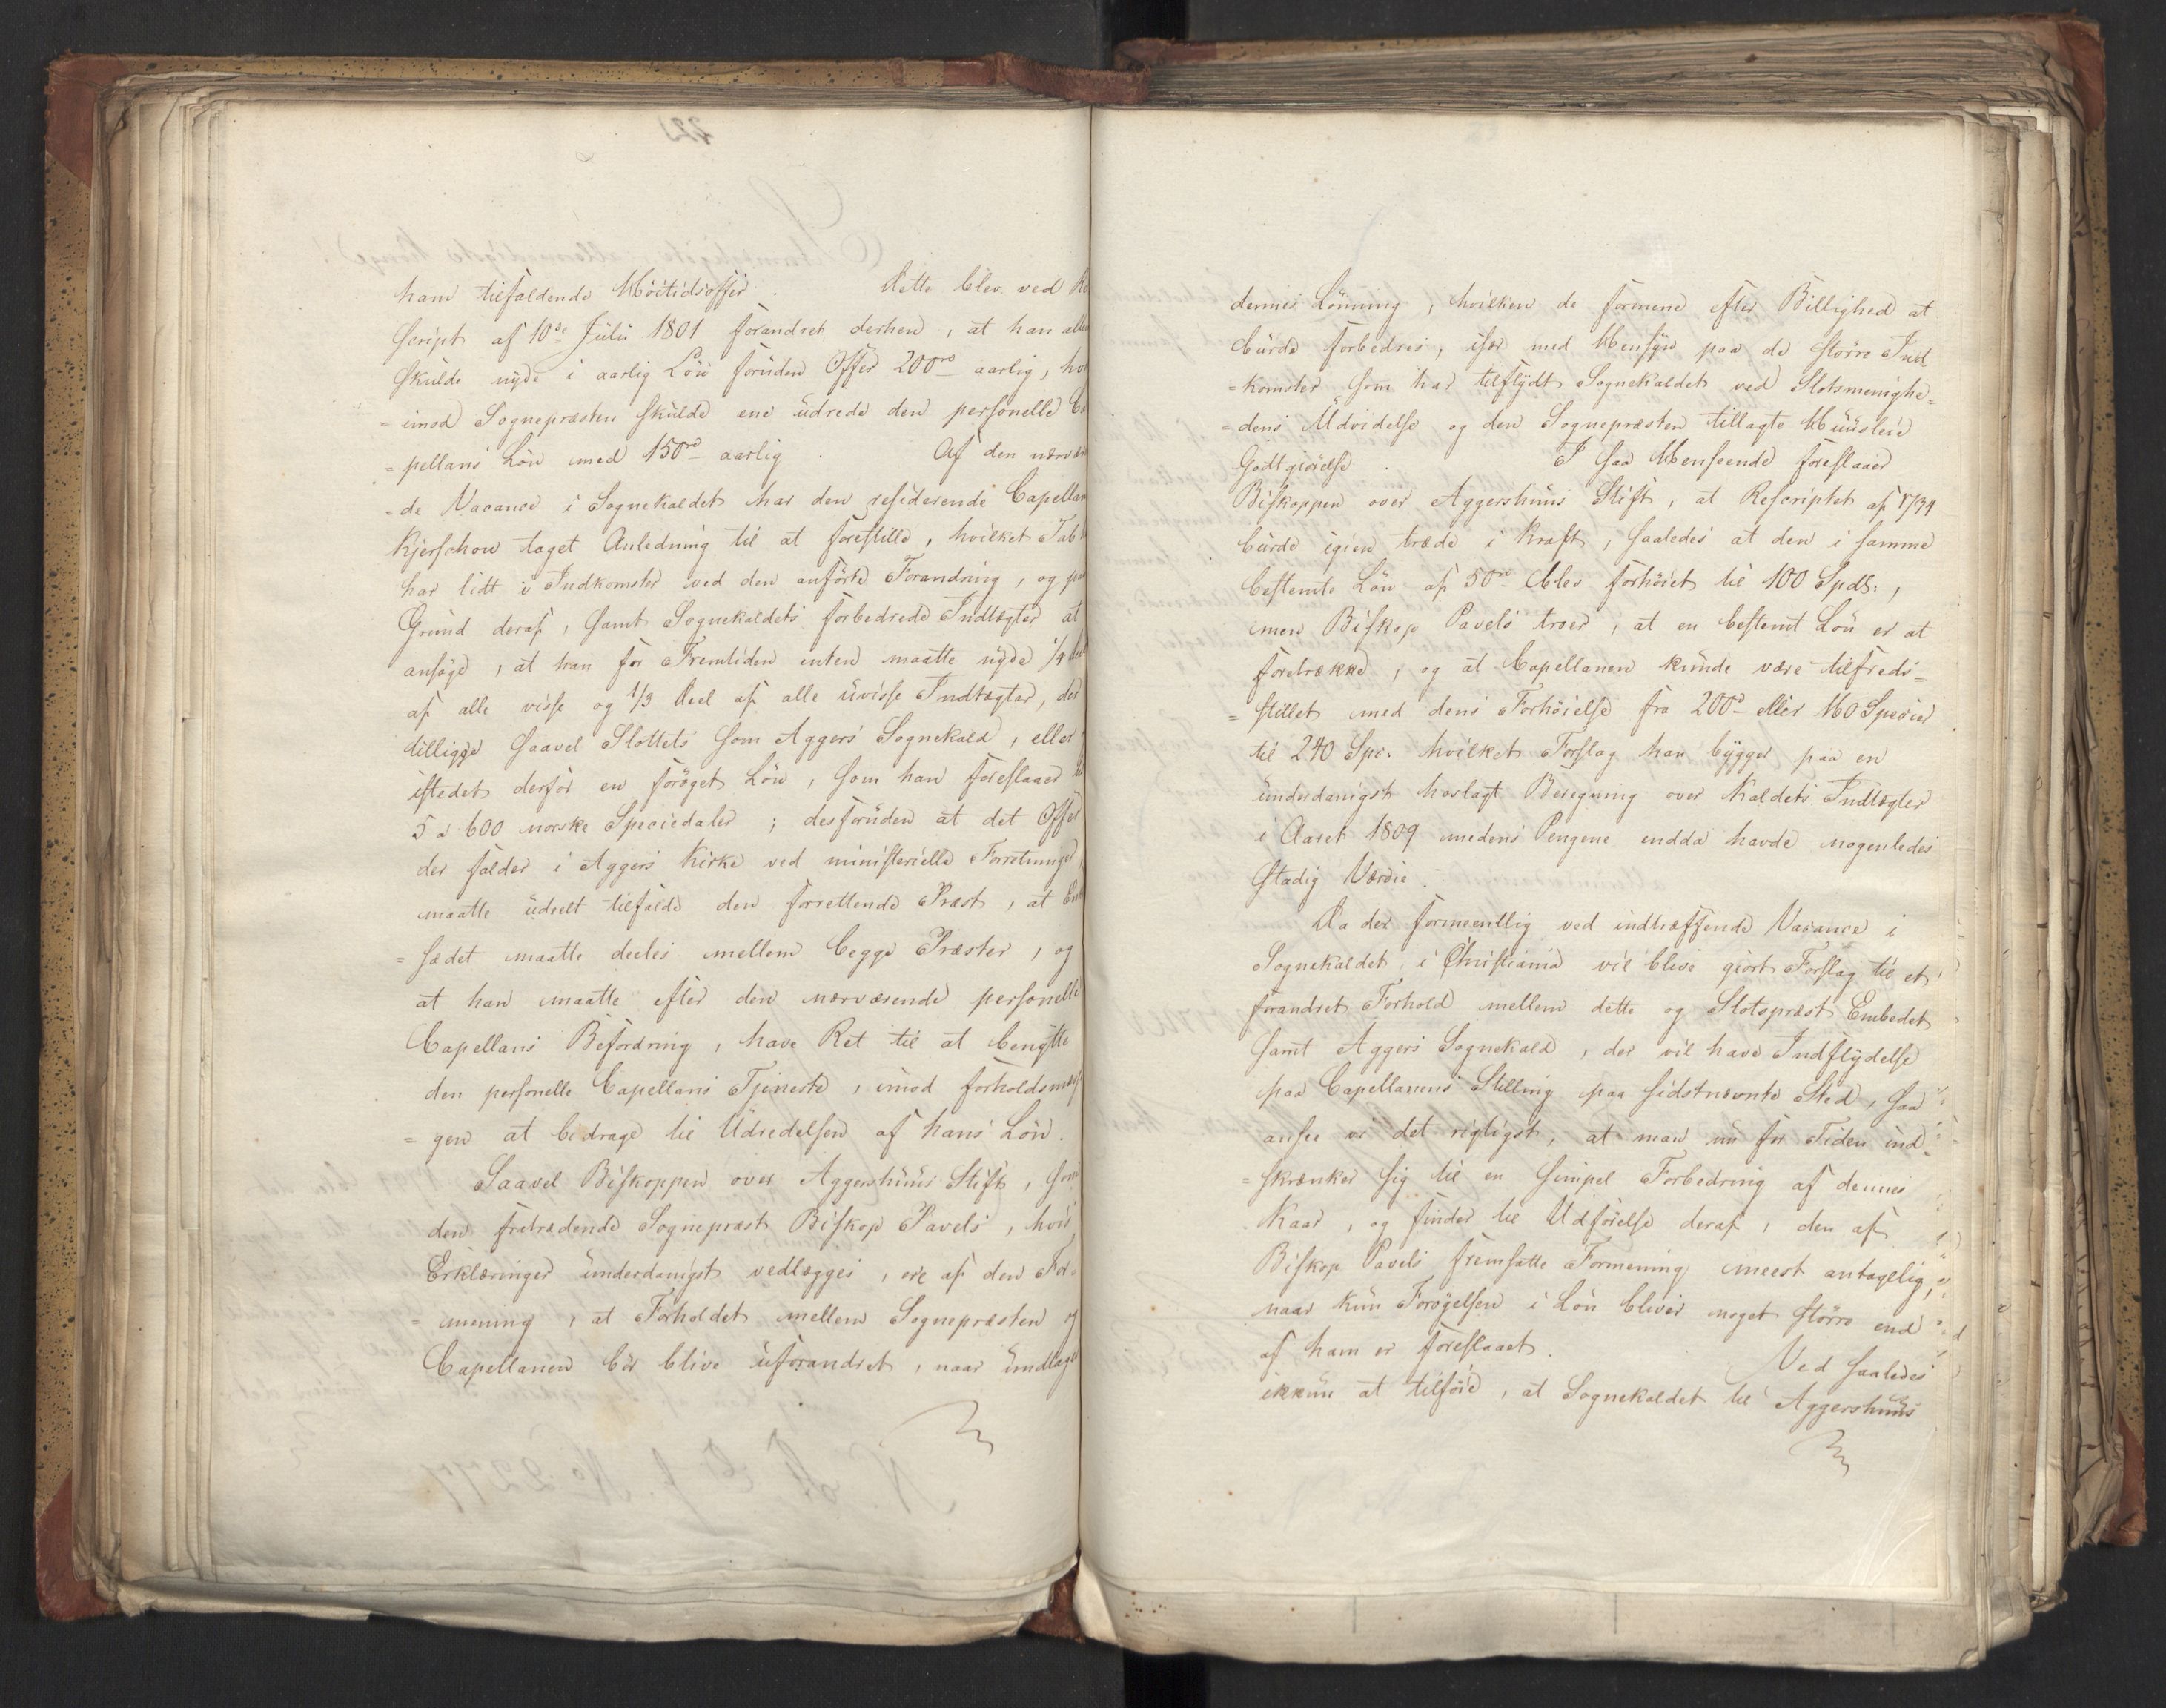 ham tilfaldende Höitidsoffer. Dette blev ved Re
script af 10de Juli 1801 forandret derhen, at han alle
skulde nyde i aarlig Lön foruden Offer 200rd aarlig, hvor
=imod Sognepræsten skulde ene udrede den personelle Ca
=pellans Lön med 150rd aarlig. Af den nærvæ
=de Vacance i Sognekaldet har den residerende Capellan
Kjerschow taget Anledning til at forestille, hvilket Tab h
har lidt i Indkomster ved den anförte Forandring, og paa
Grund deraf, samt Sognekaldets forbedrede Indtægter at
ansöge, at han for Fremtiden enten maatte nyde 1/4 deel
af alle visse og 1/3 Deel af alle uvisse Indtægter, der
tilligge saavel Slottets som Aggers Sognekald, eller
istedet derfor en foröget Lön, som han foreslaaer til
5 a 600 norske Speciedaler; desforuden at det Offer
der falder i Aggers Kirke ved ministerielle Forretninger,
maatte udeelt tilfalde den forrettende Præst, at Enke
=sædet maatte deeles mellem begge Præster, og
at han maatte efter den nærværende personelle
Capellans Befordring, have Ret til at benytte
den personelle Capellans Tjeneste, imod forholdsmæs
=gen at bidrage til Udredelsen af hans Lön.
Saavel Biskoppen over Aggershuus Stift, som
den fratrædende Sognepræst Biskop Pavels, hvis
Erklæringer underdanigst vedlægges, ere af den For=
=mening, at Forholdet mellem Sognepræsten og
Capellanen bör blive uforandret, naar undtages
dennes Lönning, hvilken de formene efter Billighed at
burde forbedres, især med Hensyn paa de större Ind
=komster som har tilflydt Sognekaldet ved Slotsmenighe=
=dens Udvidelse og den Sognepræsten tillagte Huusleie
Godtgiörelse. I saa Henseende foreslaaer
Biskoppen over Aggershuus Stift, at Rescriptet af 1739
burde igien træde i Kraft, saaledes at den i samme
bestemte Lön af 50rd blev forhöiet til 100 Spdlr.,
men Biskop Pavels troer, at en bestemt Lön er at
foretrække, og at Capellanen kunde være tilfreds=
=stillet med dens Forhöielse fra 200rd eller 160 Specier
til 240 Spc. hvilket Forslag han bygger paa en
underdanigst hoslagt Beregning over Kaldets Indtægter
i Aaret 1809 medens Pengene endda havde nogenledes
stadig Værdie.
Da der formeentlig ved indtræffende Vacance i
Sognekaldet i Christiania vil blive giort Forslag til et
forandret Forhold mellem dette og Slotspræst Embedet
samt Aggers Sognekald, der vil have Indflydelse
paa Capellanens Stilling paa sidstnævnte Sted, saa
ansee vi det rigtigst, at man nu for Tiden ind=
=skrænker sig til en simpel Forbedring af dennes
Kaar, og finder til Udförelse deraf, den af
Biskop Pavels fremsatte Formening meest antagelig,
naar kun Forögelsen i Lön bliver noget större end
af ham er foreslaaet. Ved saaledes
ikkun at tilföie, at Sognekaldet til Aggershuus